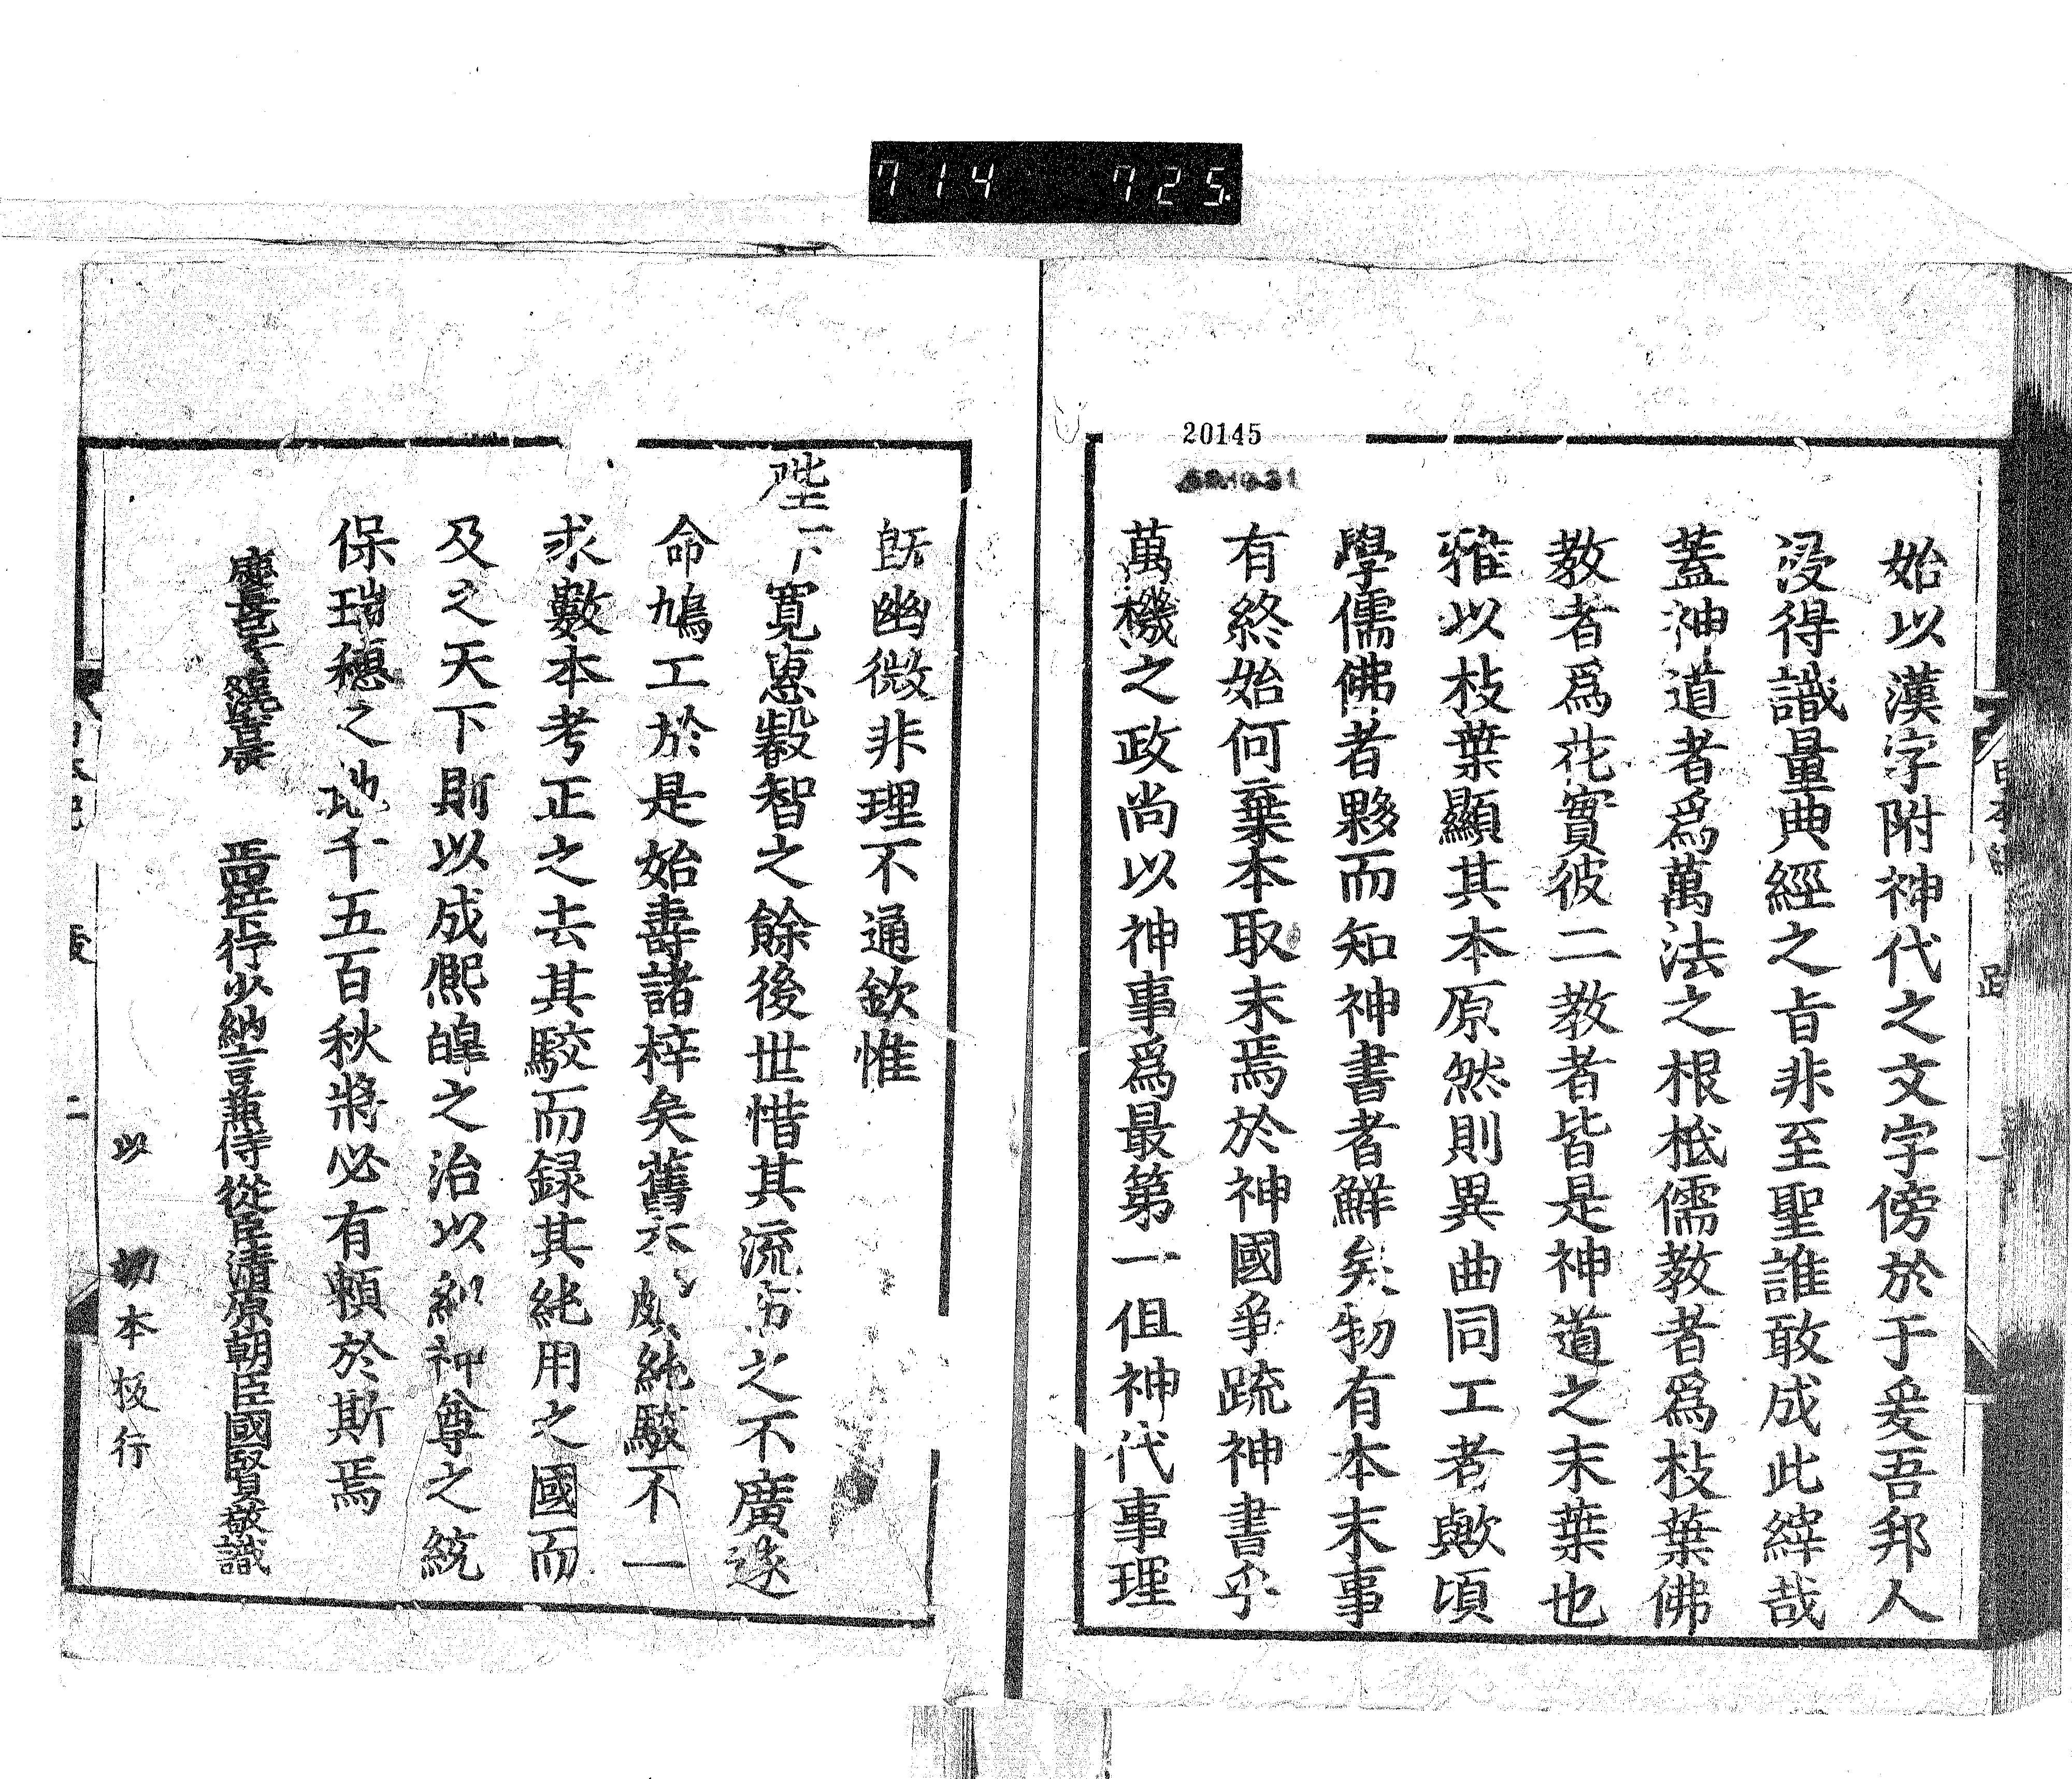 714 725
20145
始以漢字附神代之文字傍於于爰吾邦人
浸得識量典經之㫖非至聖誰敢成此緯哉
蓋神道者爲萬法之根柢儒教者爲枝葉佛
教者爲花實彼二教者皆是神道之末葉也
雅以枝葉顯其本原然則異曲同工者歟頃
學儒佛者夥而知神書者鮮矣物有本末事
有終始何棄本取末焉於神國爭疏神書乎
萬機之政尚以神事爲最第一但神代事理
既幽微非理不通欽惟
陛下寛惠叡智之餘後世惜其流布之不廣遂
命鳩工於是始壽諸梓矣舊本頗純駁不一
求數本考正之去其駁而録其純用之國而
及之天下則以成熙皥之治以紹神尊之統
保瑞穗之地千五百秋將必有賴於斯焉
行少納言兼侍從臣清原朝臣國賢敬識
以 勅本板行
二